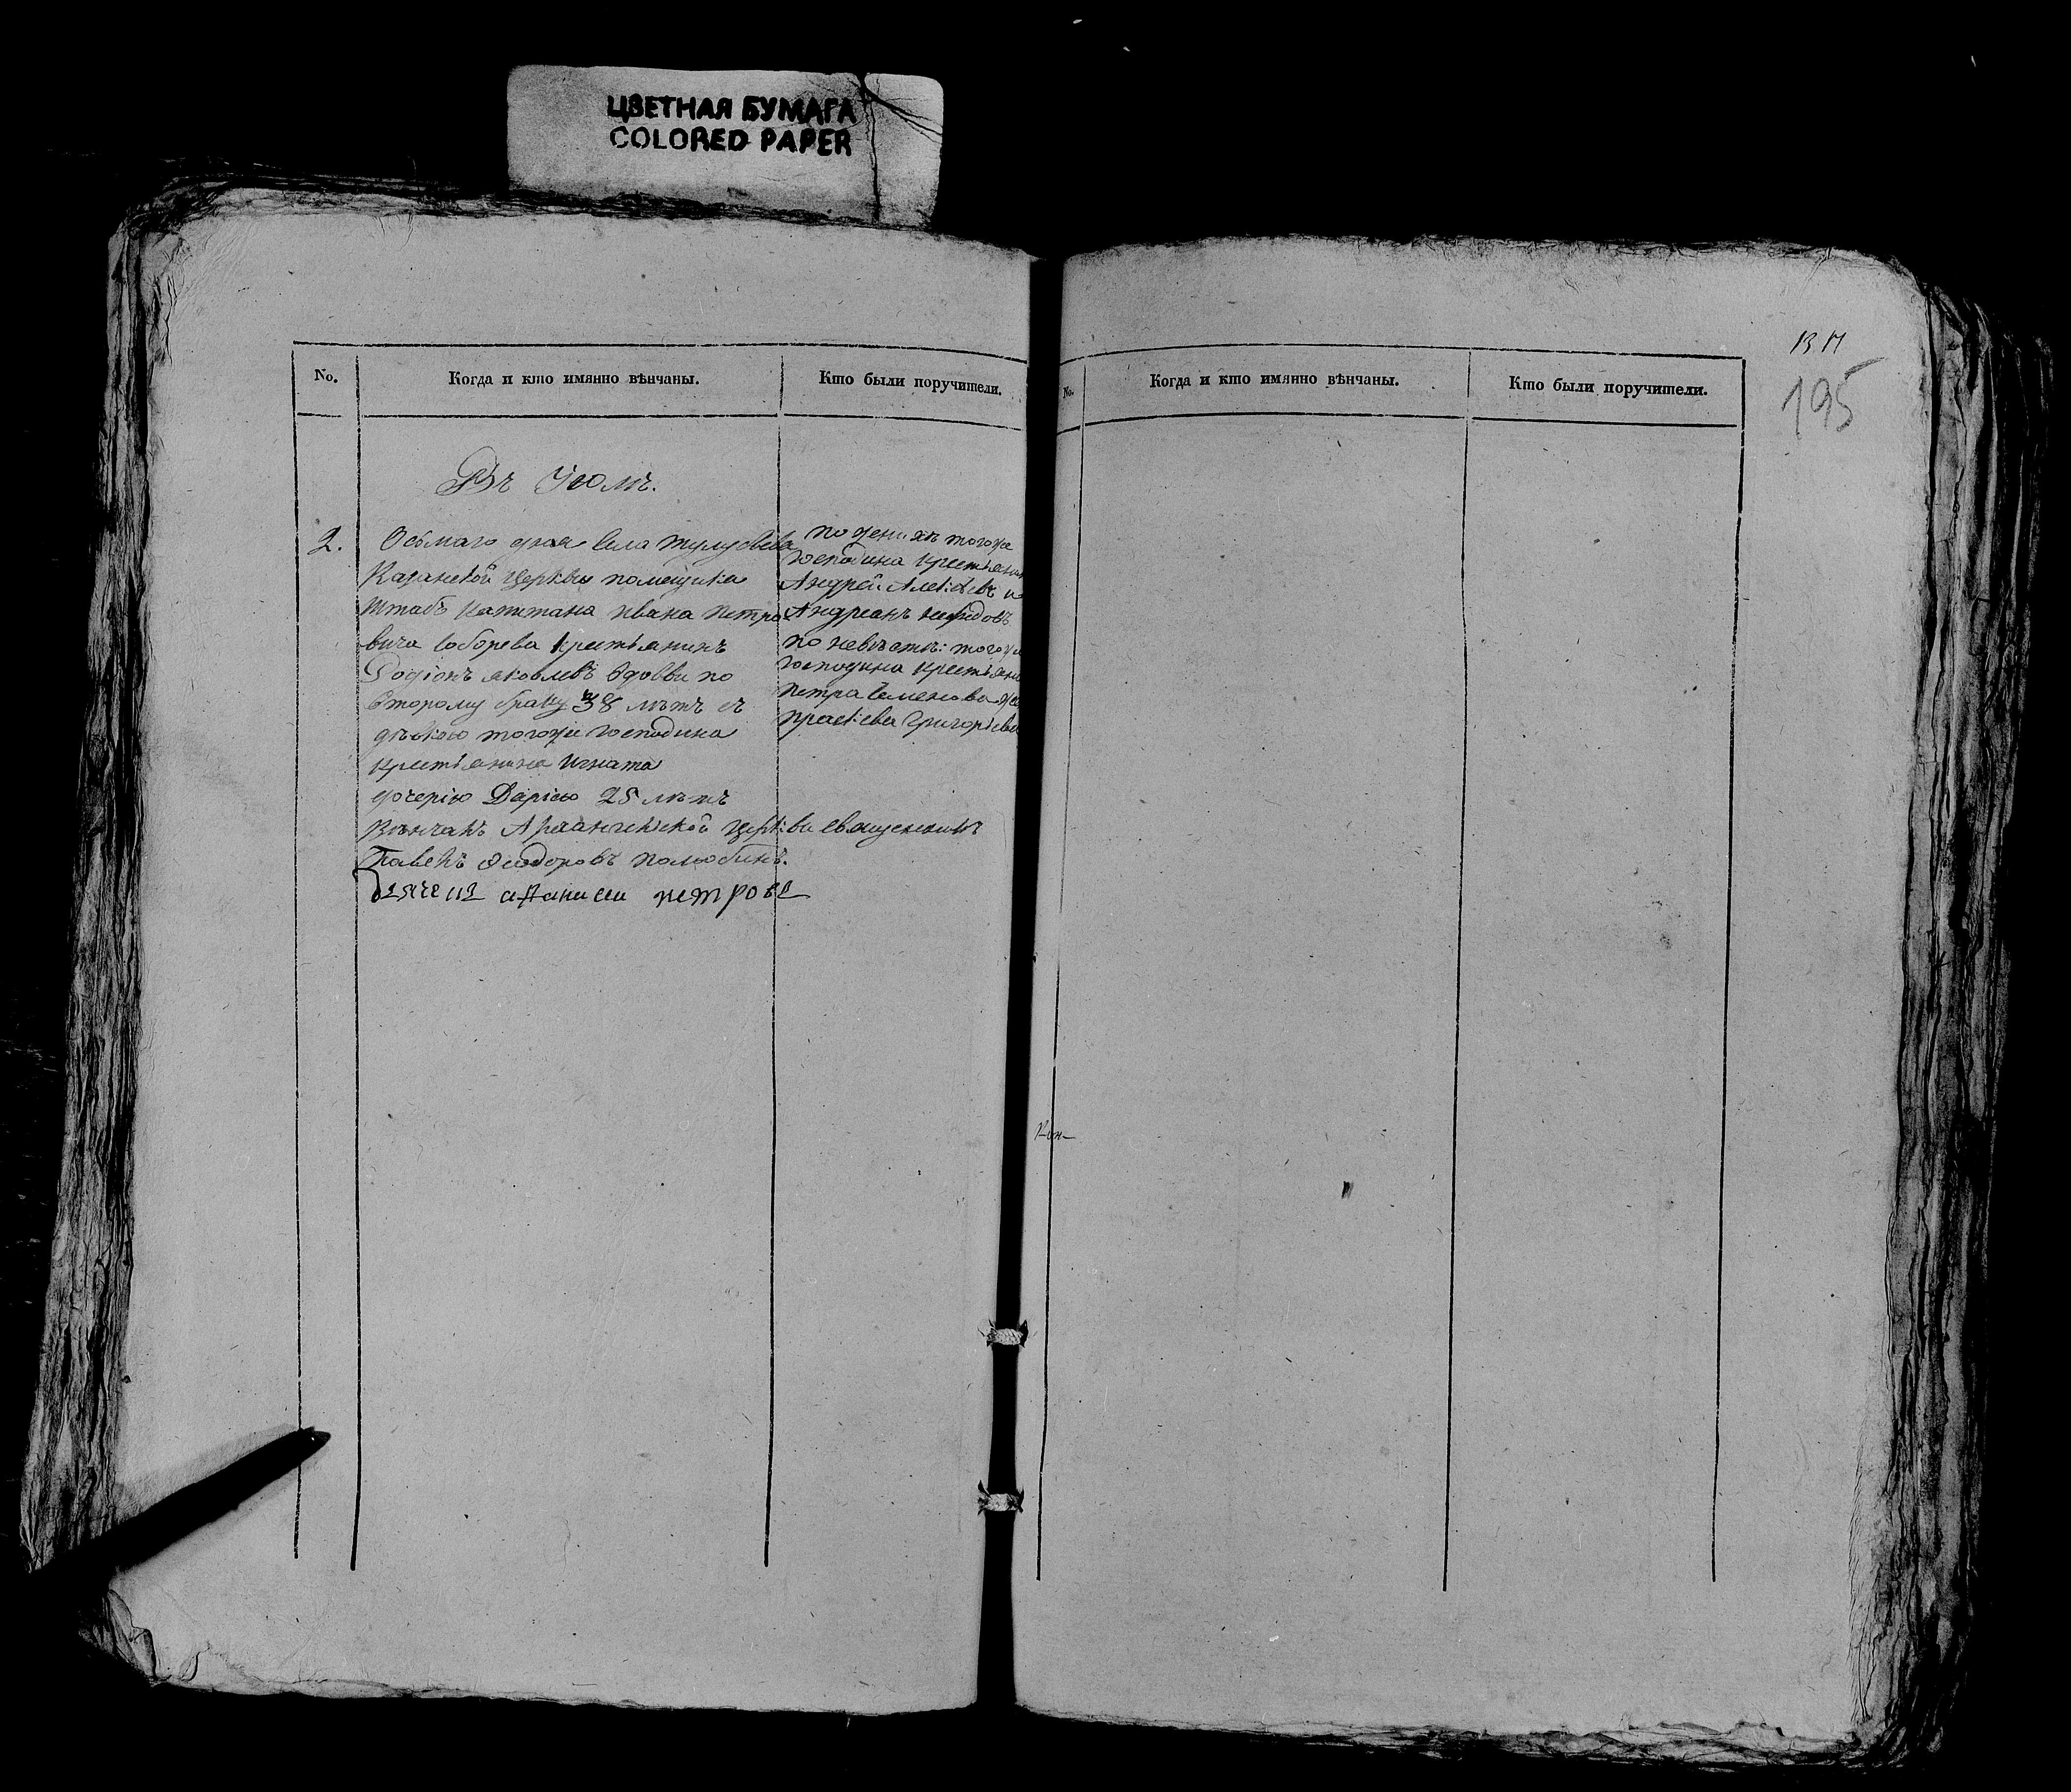 ЦВЕТНАЯ БУМАГА
COLORED PAPER
No.
Когда и кто имянно вѣнчаны.
Кто были поручители.
Въ Июлѣ.
2.
Осьмаго дня села
Казанской церквы помещика
Штабъ капитана ивана петро
вича крестьянинъ
Родіонъ яковлевъ вдовви по
второму браку 38 лѣтъ съ
дѣвкою тогоже господина
крестьянина игната
дочерію Даріею 25 лѣтъ
Вѣнчалъ Архангельской церкви священникъ
Павелъ Феодоровъ
петровъ
по женихѣ тогоже
господина крестьяни
Андрей Алексѣевъ и
Андреанъ
по невѣстѣ: тогоже
господина крестьяни
петра семенова
григорьева
No.
Когда и кто имянно вѣнчаны.
Кто были поручители.
195